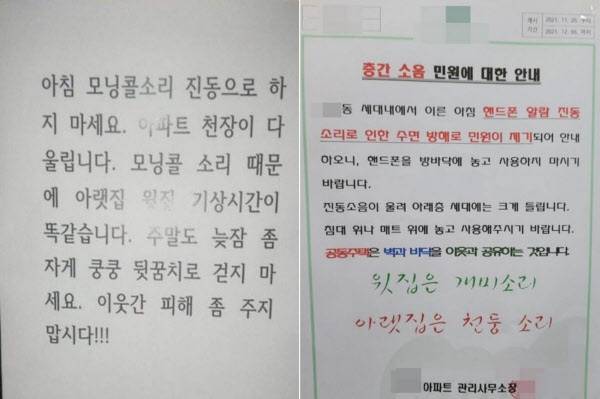 아침 모닝콜소리 진동으로 하
지 마세요. 아파트 천장이 다
울립니다. 모닝콜 소리 때문
에 아랫집 윗집 기상시간이
똑같습니다. 주말도 늦잠 좀
자게 쿵쿵 뒷꿈치로 걷지 마
세요. 이웃간 피해 좀 주지
맙시다!!!
게시
기간
2021. 11. 26. 부터
2021. 12. 까지
층간 소음 민원에 대한 안내
동 세대내에서 이른 아침 핸드폰 알람 진동
소리로 인한 수면 방해로 민원이 제기되어 안내
하오니, 핸드폰을 방바닥에 놓고 사용하지 마시기
바랍니다.
진동소음이 울려 아래층 세대에는 크게 들립니다.
침대 위나 매트 위에 놓고 사용해주시기 바랍니다.
공동주택은 벽과 바닥을 이웃과 공유하는 것입니다.
윗집은 개미소리
아랫집은 천둥 소리
아파트 관리사무소장